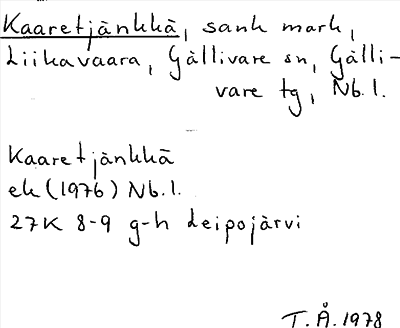 Kaaretjänkkä, sank mark,
Liikavaara, Gällivare sn, Gälli-
vare tg, Nb. l.
Kaaretjänkkä
ek (1976) Nb. l.
27K 8-9 g-h Leipojärvi
T. Å. 1978